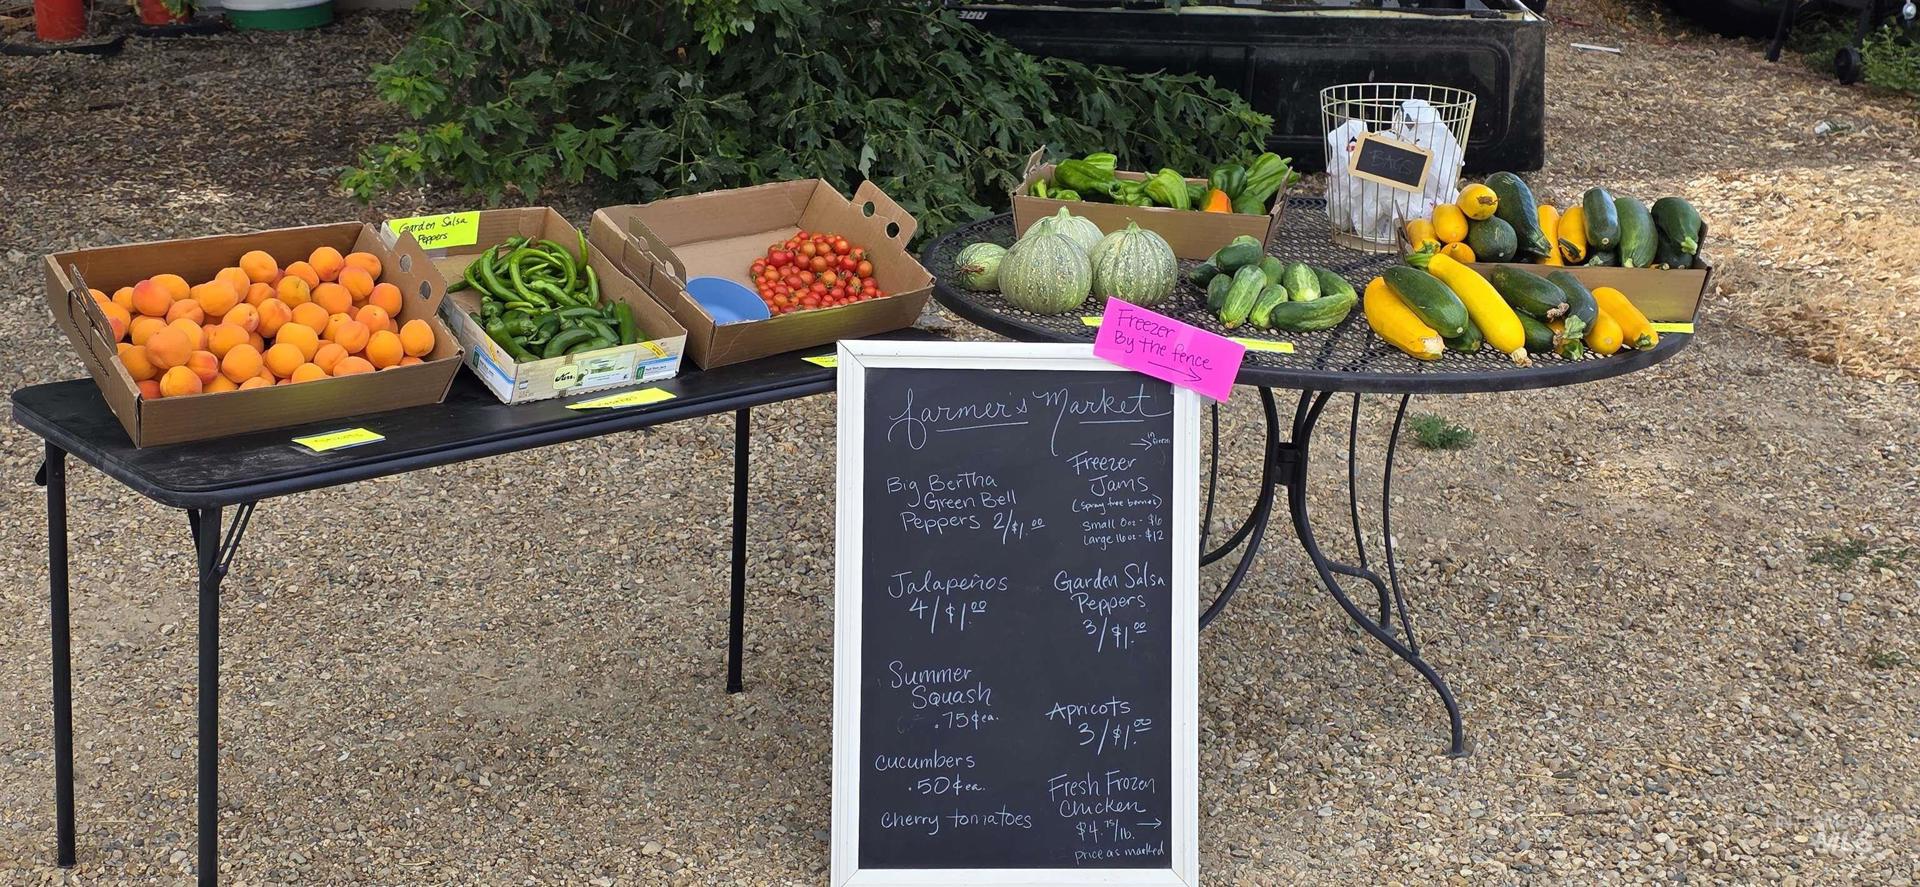 Garden Salsa
Peppers
BAGS
Freezer
By the fence
Farmer's Market
Big Bertha
Green Bell
Peppers 2/$1.00
Jalapeños
4/$1.00
Summer
Squash
.75¢ea.
cucumbers
.50¢ea.
cherry tomatoes
→ in
Freezer
Jams
(spray free berries)
Small 8oz - $6
Large 16oz - $12
Garden Salsa
Peppers
3/$1.00
Apricots
3/$1.00
Fresh Frozen
Chicken
$4.75/lb. →
price as marked
MLS